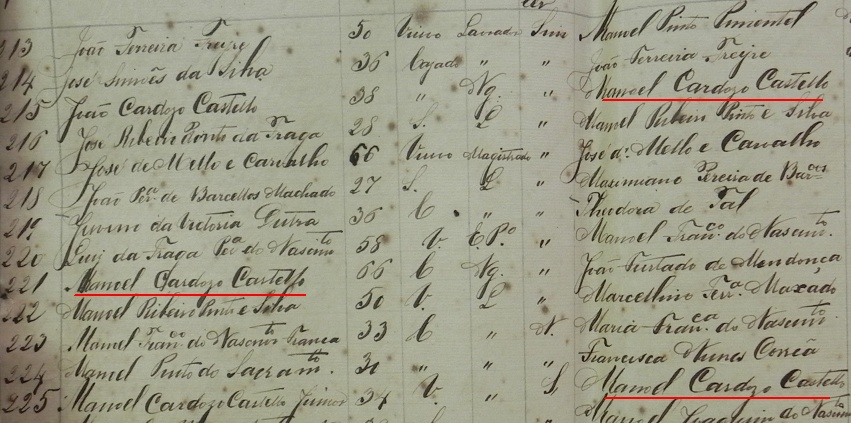 213 João Ferreira Freyre 50 Viuvo Lavrador Sim Manoel Pinto Pimentel
214 José Simões da Silva 36 Cazado " " João Ferreira Freyre
215 João Cardozo Castello 38 " Ng. " Manoel Cardozo Castello
216 José Ribeiro Pinto da Fraga 28 S. L " Manoel Ribeiro Pinto e Silva
217 José de Mello e Carvalho 66 Viuvo Magistrado " José de Mello e Carvalho
218 João Perª de Barcellos Machado 27 S. L " Maximiano Pereira de Barcos
219 da Victoria Dutra 36 C " " Theodora de Tal
220 Luiz da Fraga Perª do Nascimto 58 V. E.Pº " Manoel Franco do Nascimto.
221 Manoel Cardozo Castello 66 C Ng. " João Furtado de Mendonça
222 Manoel Ribeiro Pinto e Silva 50 V. L " Marcellino Ferrª Maxado
223 Manoel Franco do Nascimto França 33 C " N. Maria Franca do Nascimto.
224 Manoel Pinto do Sacramto. 31 " " Francisca Nunes Corrêa
225 Manoel Cardozo Castello Junior 34 V. " S. Manoel Cardozo Castello
Manoel Joaquim do Nascimto